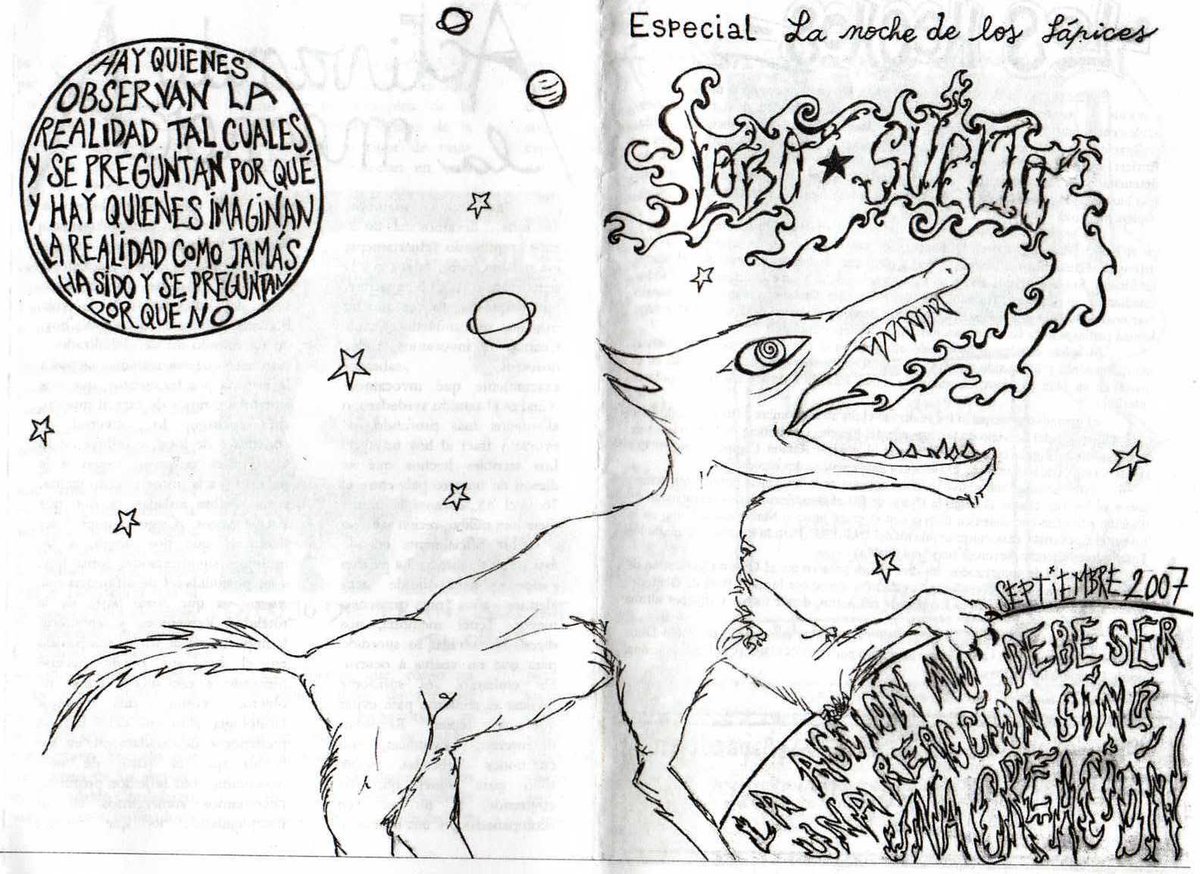 HAY QUIENES
OBSERVAN LA
REALIDAD TAL CUAL ES
Y SE PREGUNTAN POR QUÉ
Y HAY QUIENES IMAGINAN
LA REALIDAD COMO JAMÁS
HA SIDO Y SE PREGUNTAN
POR QUÉ NO
Especial La noche de los Lápices
LOBO ★ SUELTO
SEPTIEMBRE 2007
LA ACCIÓN NO DEBE SER
UNA REACCION SINO
UNA CREACIÓN